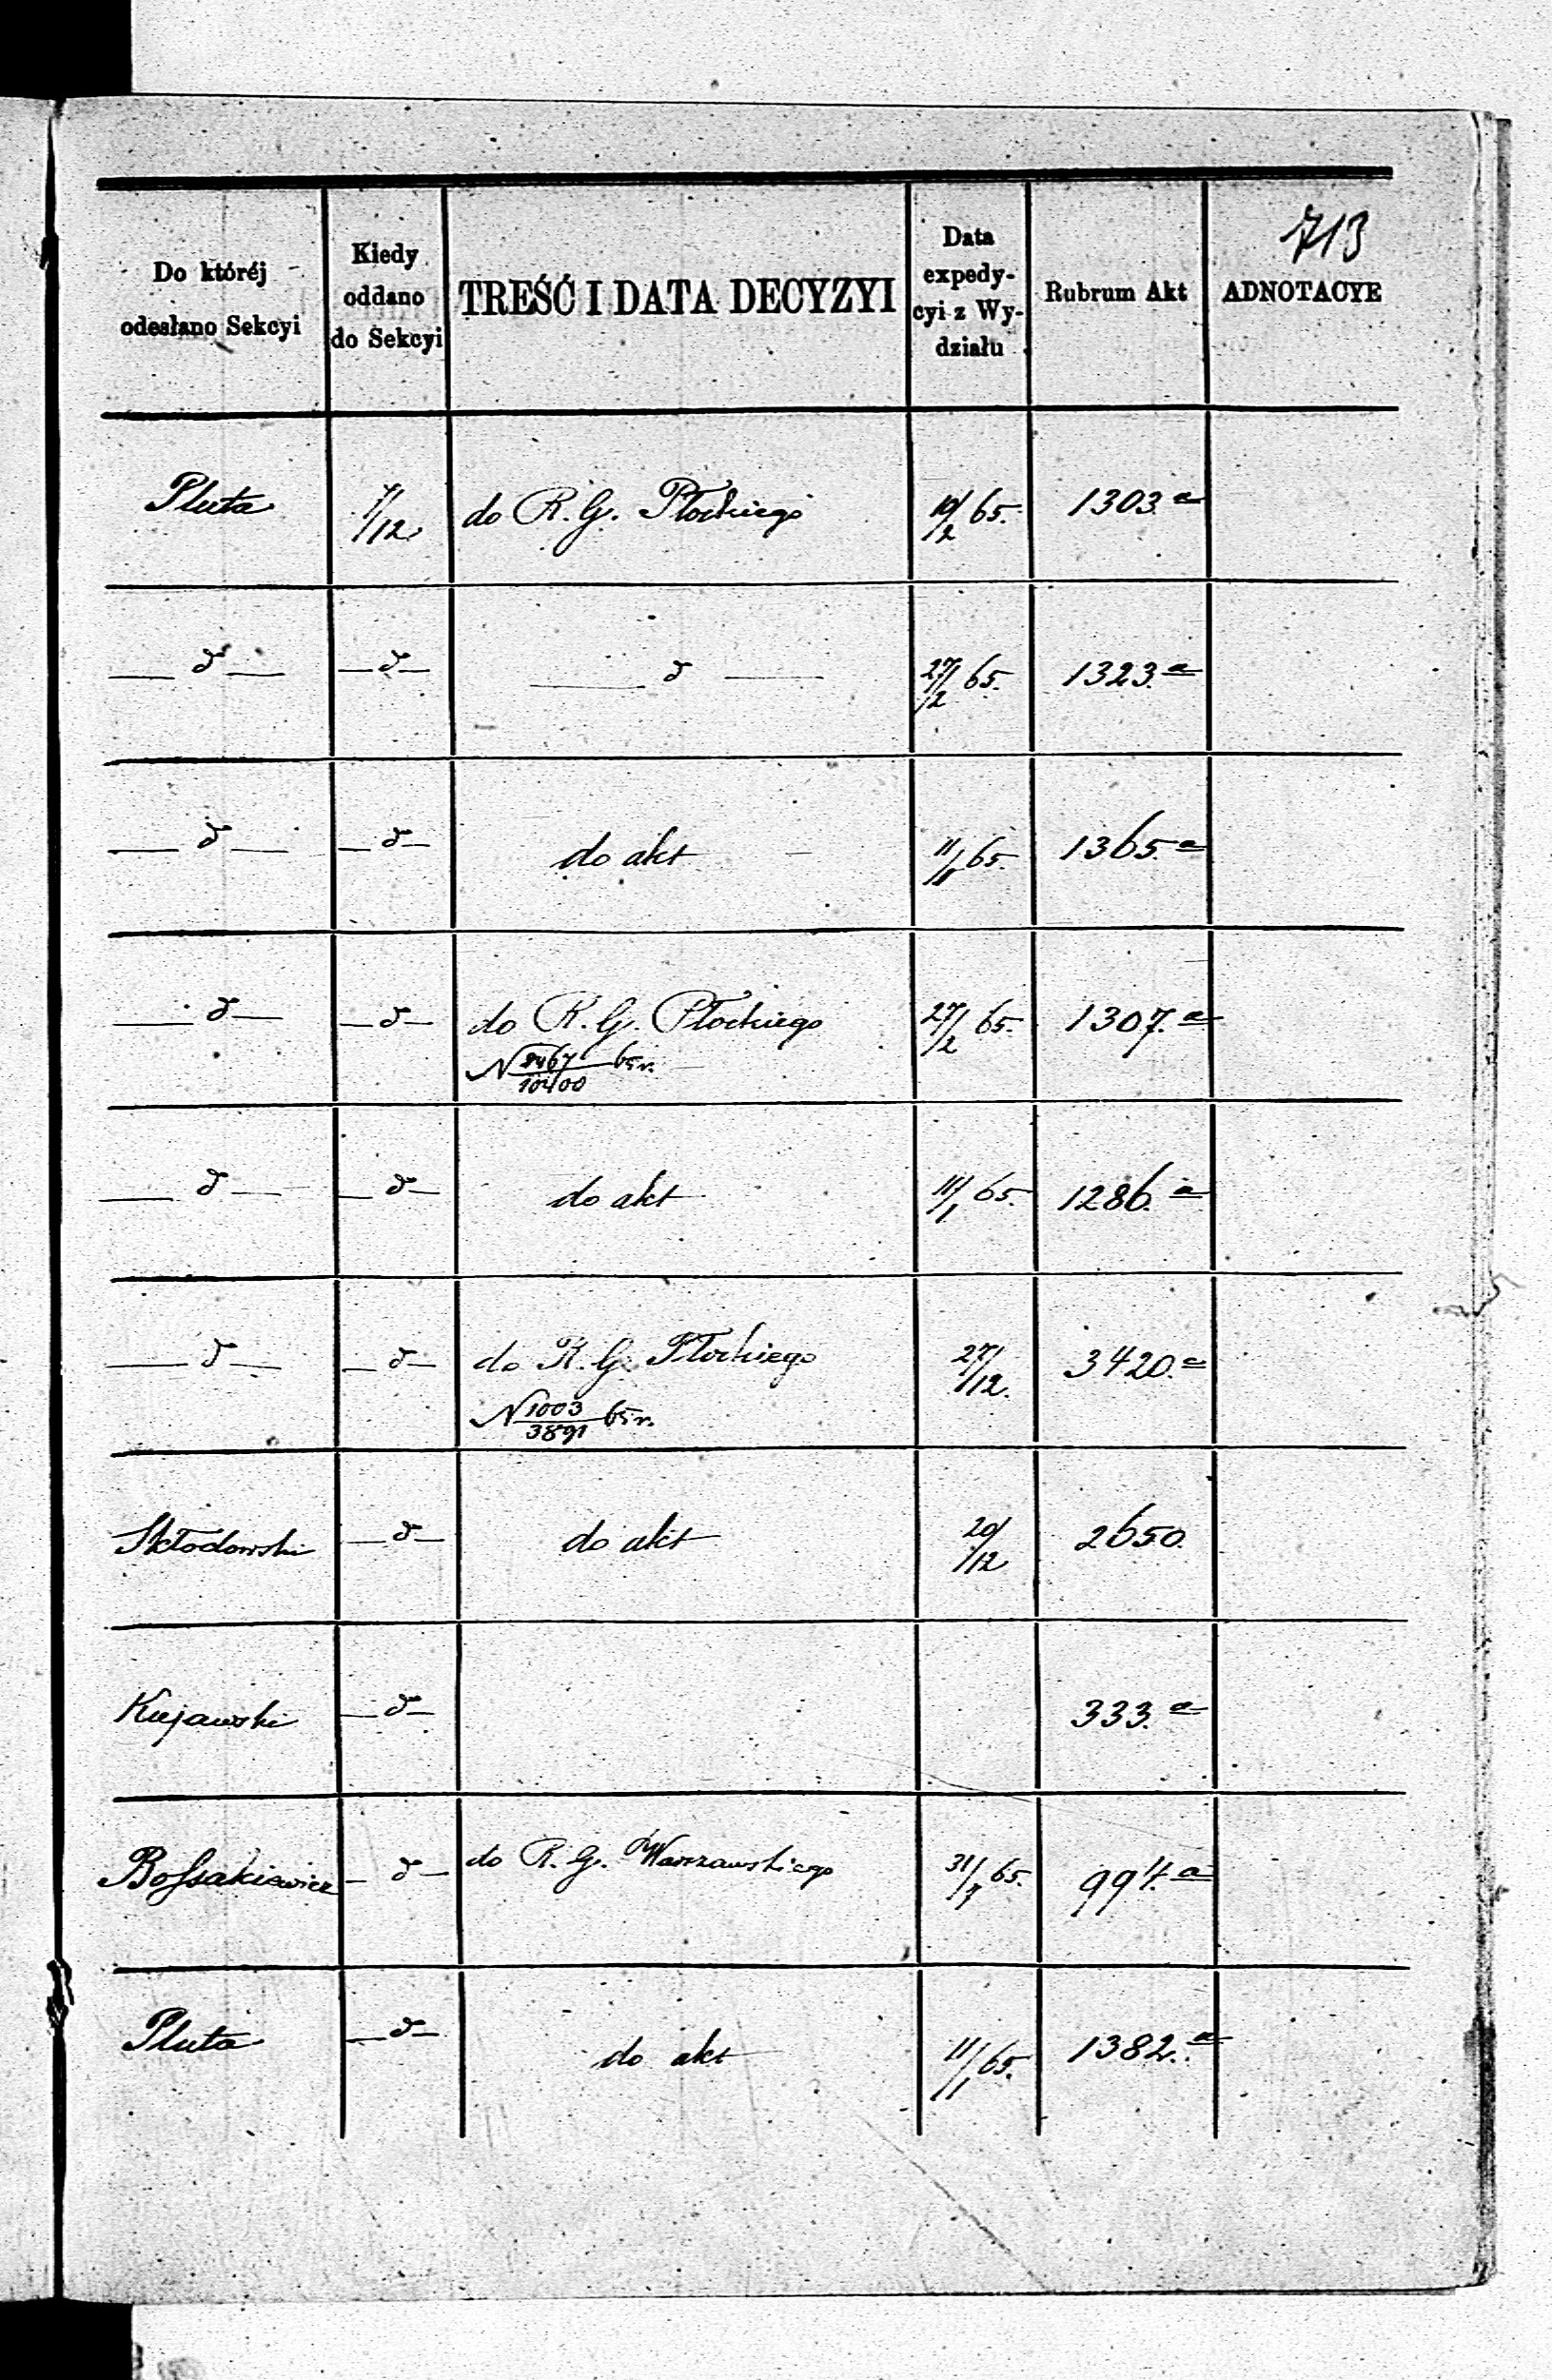 713
Do któréj odesłano Sekcyi | Kiedy oddano do Sekcyi | TREŚĆ I DATA DECYZYI | Data expedycyi z Wydziału | Rubrum Akt | ADNOTACYE
Pluta 7/12 do R. G. Płockiego 19/2 65. 1303.a
— d — — d — — d — 27/2 65. 1323.a
— d — — d — do akt 11/1 65. 1365.a
— d — — d — do R. G. Płockiego 27/2 65. 1307.a
N 8467/10400 65 r.
— d — — d — do akt 11/1 65. 1286.a
— d — — d — do R. G. Płockiego 27/12. 3420.a
N 1003/3891 65 r.
Skłodowski — d — do akt 20/12 2650.
Kujawski — d — 333.a
Bossakiewicz — d — do R. G. Warszawskiego 31/7 65. 994.a
Pluta — d — do akt 11/1 65. 1382.a